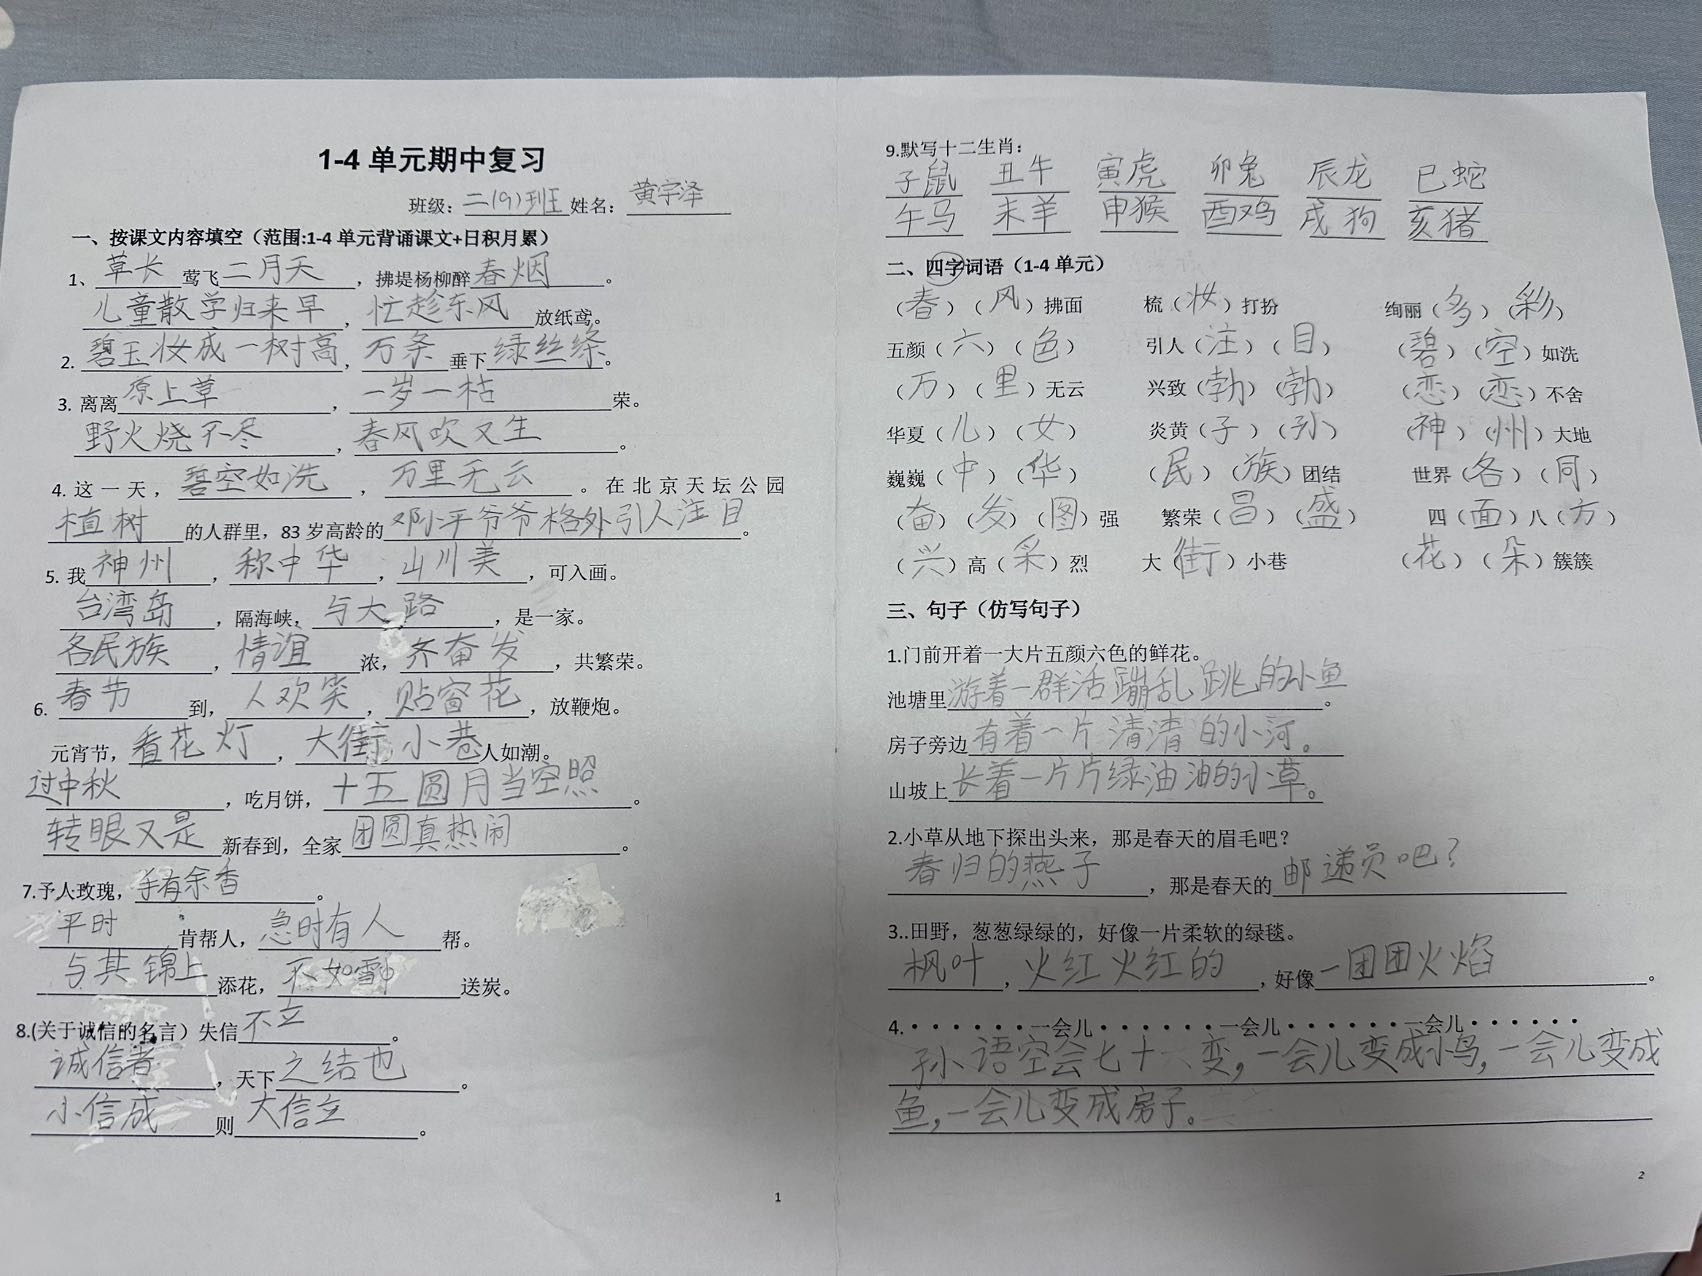 1-4 单元期中复习
班级：二(9)班 姓名：黄宇泽
一、按课文内容填空（范围:1-4 单元背诵课文+日积月累）
1、草长莺飞二月天，拂堤杨柳醉春烟。
儿童散学归来早，忙趁东风放纸鸢。
2. 碧玉妆成一树高，万条垂下绿丝绦。
3. 离离原上草，一岁一枯荣。
野火烧不尽，春风吹又生。
4. 这一天，碧空如洗，万里无云。在北京天坛公园
植树的人群里，83 岁高龄的邓小平爷爷格外引人注目。
5. 我神州，称中华，山川美，可入画。
台湾岛，隔海峡，与大路，是一家。
各民族，情谊浓，齐奋发，共繁荣。
6. 春节到，人欢笑，贴窗花，放鞭炮。
元宵节，看花灯，大街小巷人如潮。
过中秋，吃月饼，十五圆月当空照。
转眼又是新春到，全家团圆真热闹。
7.予人玫瑰，手有余香。
平时肯帮人，急时有人帮。
与其锦上添花，不如雪中送炭。
8.(关于诚信的名言）失信不立。
诚信者，天下之结也。
小信成则大信立。
1
9.默写十二生肖：
子鼠 丑牛 寅虎 卯兔 辰龙 巳蛇
午马 未羊 申猴 酉鸡 戌狗 亥猪
二、四字词语（1-4 单元）
（春）（风）拂面 梳（妆）打扮 绚丽（多）（彩）
五颜（六）（色） 引人（注）（目） （碧）（空）如洗
（万）（里）无云 兴致（勃）（勃） （恋）（恋）不舍
华夏（儿）（女） 炎黄（子）（孙） （神）（州）大地
巍巍（中）（华） （民）（族）团结 世界（各）（同）
（奋）（发）（图）强 繁荣（昌）（盛） 四（面）八（方）
（兴）高（采）烈 大（街）小巷 （花）（朵）簇簇
三、句子（仿写句子）
1.门前开着一大片五颜六色的鲜花。
池塘里游着一群活蹦乱跳的小鱼。
房子旁边有着一片清清的小河。
山坡上长着一片片绿油油的小草。
2.小草从地下探出头来，那是春天的眉毛吧？
春归的燕子，那是春天的邮递员吧？
3..田野，葱葱绿绿的，好像一片柔软的绿毯。
枫叶，火红火红的，好像一团团火焰。
4.······一会儿······一会儿······一会儿······
孙语空会七十六变，一会儿变成小鸟，一会儿变成
鱼，一会儿变成房子。
2